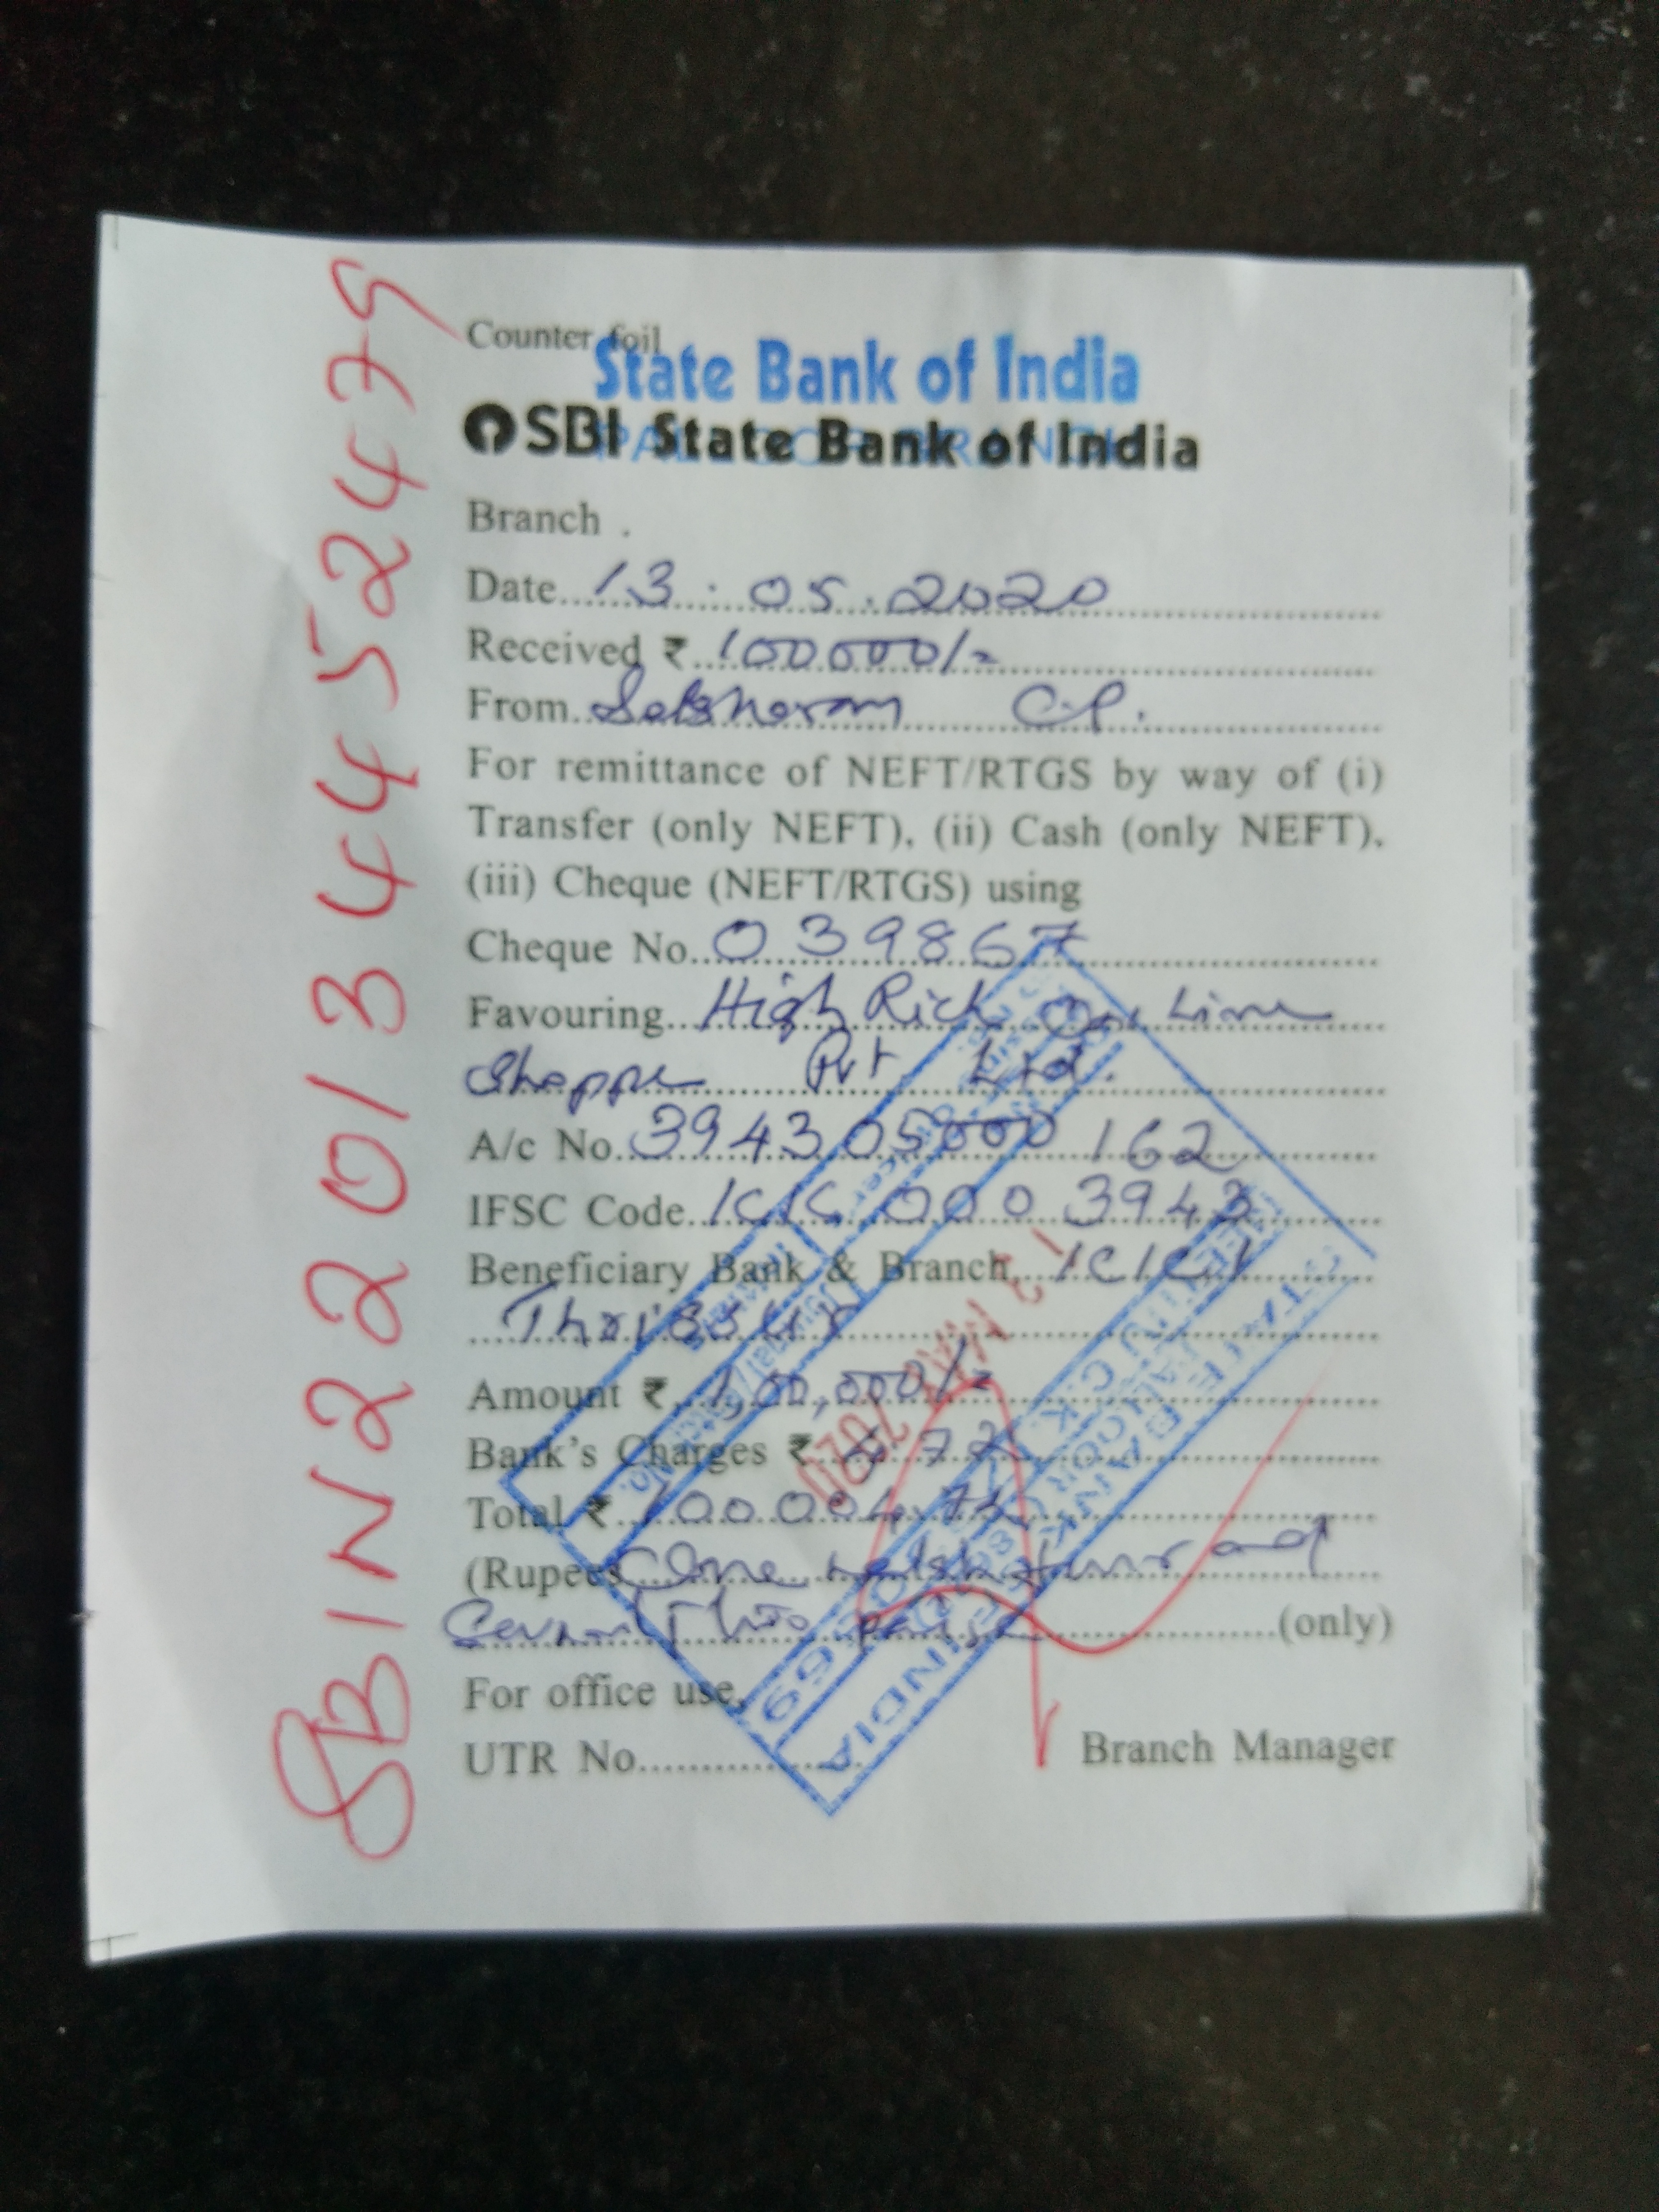 Counter foil
State Bank of India
SBI State Bank of India
Branch
Date 13.05.2020
Received ₹ 100000/=
From C.P.
For remittance of NEFT/RTGS by way of (i)
Transfer (only NEFT), (ii) Cash (only NEFT),
(iii) Cheque (NEFT/RTGS) using
Cheque No. 039867
Favouring High Rich On Line
Shoppe Pvt Ltd.
A/c No. 394305000162
IFSC Code ICIC 0003943
Beneficiary Bank & Branch ICICI
Thrissur
Amount ₹ 100,000/=
Bank's Charges ₹ 4.72
Total ₹ 100004.72
(Rupees One lakh four and
Seventy two paise (only)
For office use
UTR No.
Branch Manager
SBIN220134452479
13 MAY 2020
STATE BANK OF INDIA